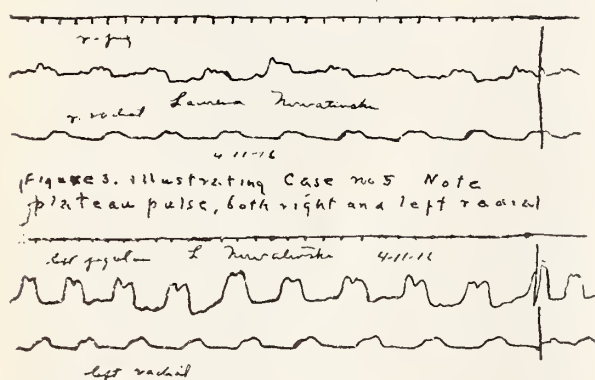 r-jug
r. radial Laurena Nowatinska
4-11-16
Figure 3. illustrating Case no 5 Note
plateau pulse, both right and left radial
left jugular L Nowalinska 4-11-16
left radial